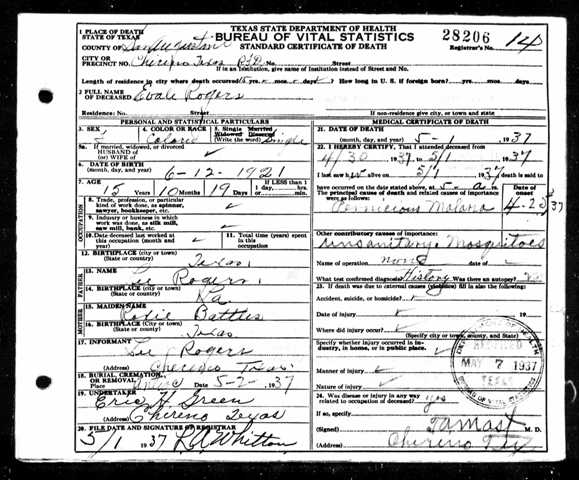 TEXAS STATE DEPARTMENT OF HEALTH
BUREAU OF VITAL STATISTICS
STANDARD CERTIFICATE OF DEATH
28206
Registrar's No. 14
1 PLACE OF DEATH
STATE OF TEXAS
COUNTY OF San Augustine
CITY OR PRECINCT NO. Chireno Texas RFD No. Street
If in an Institution, give name of Institution instead of Street and No.
Length of residence in city where death occurred 15 yrs. mos. days How long in U. S. if foreign born? yrs. mos. days
2 FULL NAME OF DECEASED Evale Rogers
Residence: No. Street
If non-residence give city or town and State
PERSONAL AND STATISTICAL PARTICULARS
3. SEX 4. COLOR OR RACE 5. Single Married Widowed Divorced (Write the word) Single
5a. If married, widowed, or divorced
HUSBAND OF
(or) WIFE OF
6. DATE OF BIRTH
(month, day, and year) 6-12-1921
7. AGE 15 Years 10 Months 19 Days If LESS than 1 day, hrs. or min.
8. Trade, profession, or particular kind of work done, as spinner, sawyer, bookkeeper, etc.
9. Industry or business in which work was done, as silk mill, saw mill, bank, etc.
10. Date deceased last worked at this occupation (month and year) 11. Total time (years) spent in this occupation
12. BIRTHPLACE (city or town)
(State or country) Texas
FATHER
13. NAME Lee Rogers
14. BIRTHPLACE (City or town)
(State or country)
MOTHER
15. MAIDEN NAME Battles
16. BIRTHPLACE (City or town)
(State or country) Texas
17. INFORMANT Lee Rogers
(Address) Chireno Texas
18. BURIAL, CREMATION, OR REMOVAL
Date 5-2-1937
19. UNDERTAKER Eric H Green
(Address) Chireno Texas
20. FILE DATE AND SIGNATURE OF REGISTRAR
5/1 1937 R A Whitton
MEDICAL CERTIFICATE OF DEATH
21. DATE OF DEATH
(month, day, and year) 5-1 1937
22. I HEREBY CERTIFY, That I attended deceased from
4/30 1937 5/1 1937
I last saw h alive on 5/1 1937 death is said to
have occurred on the date stated above, at 5- a. m.
The principal cause of death and related causes of importance were as follows:
Date of onset
Pernicious Malaria 4-25/37
Other contributory causes of importance:
Unsanitary. Mosquitoes
Name of operation none date of
What test confirmed diagnosis? History Was there an autopsy?
23. If death was due to external causes (violence) fill in also the following:
Accident, suicide, or homicide?
Date of injury 193
Where did injury occur?
(Specify city or town, county, and State)
Specify whether injury occurred in industry, in home, or in public place.
Manner of injury
Nature of injury
24. Was disease or injury in any way related to occupation of deceased? yes
If so, specify
(Signed) M. D.
(Address) Chireno Tex
MAY 7 1937
TEXAS